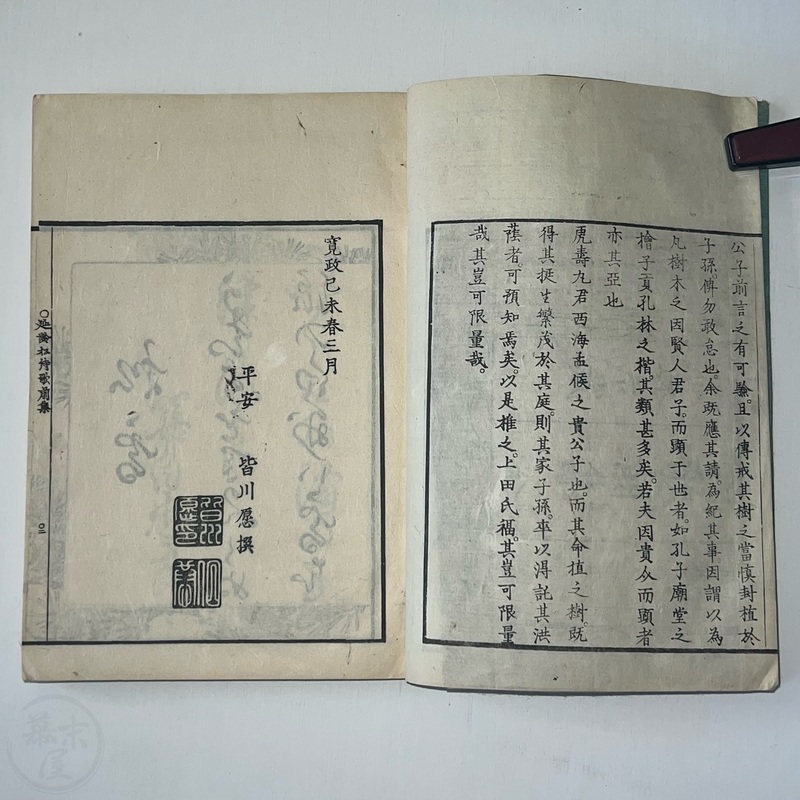 公子前言之有可驗。且以傳戒其樹之當慎封植於
子孫。俾勿敢怠也。余既應其請。為紀其事因謂以為
凡樹木之因賢人君子。而顕于世者。如孔子廟堂之
檜子貢孔林之楷。其類甚多矣。若夫因貴公而顕者
亦其亞也
虎壽九君西海孟侯之貴公子也。而其命植之樹。既
得其挺生繁茂於其庭。則其家子孫。率以得託其洪
蔭者可預知焉矣。以是推之。上田氏福。其豈可限量
哉其豈可限量哉。
寛政己未春三月
平安 皆川愿撰
皆川愿印
伯恭
詩歌前集